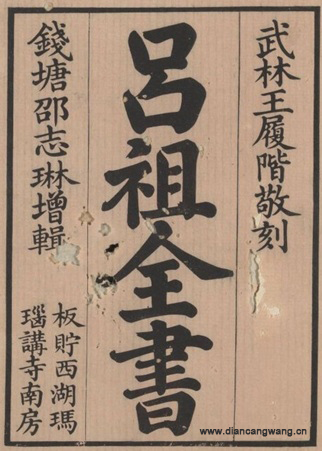 武林王履階敬刻
呂祖全書
錢塘邵志琳增輯
板貯西湖瑪
瑙講寺南房
www.diancangwang.cn